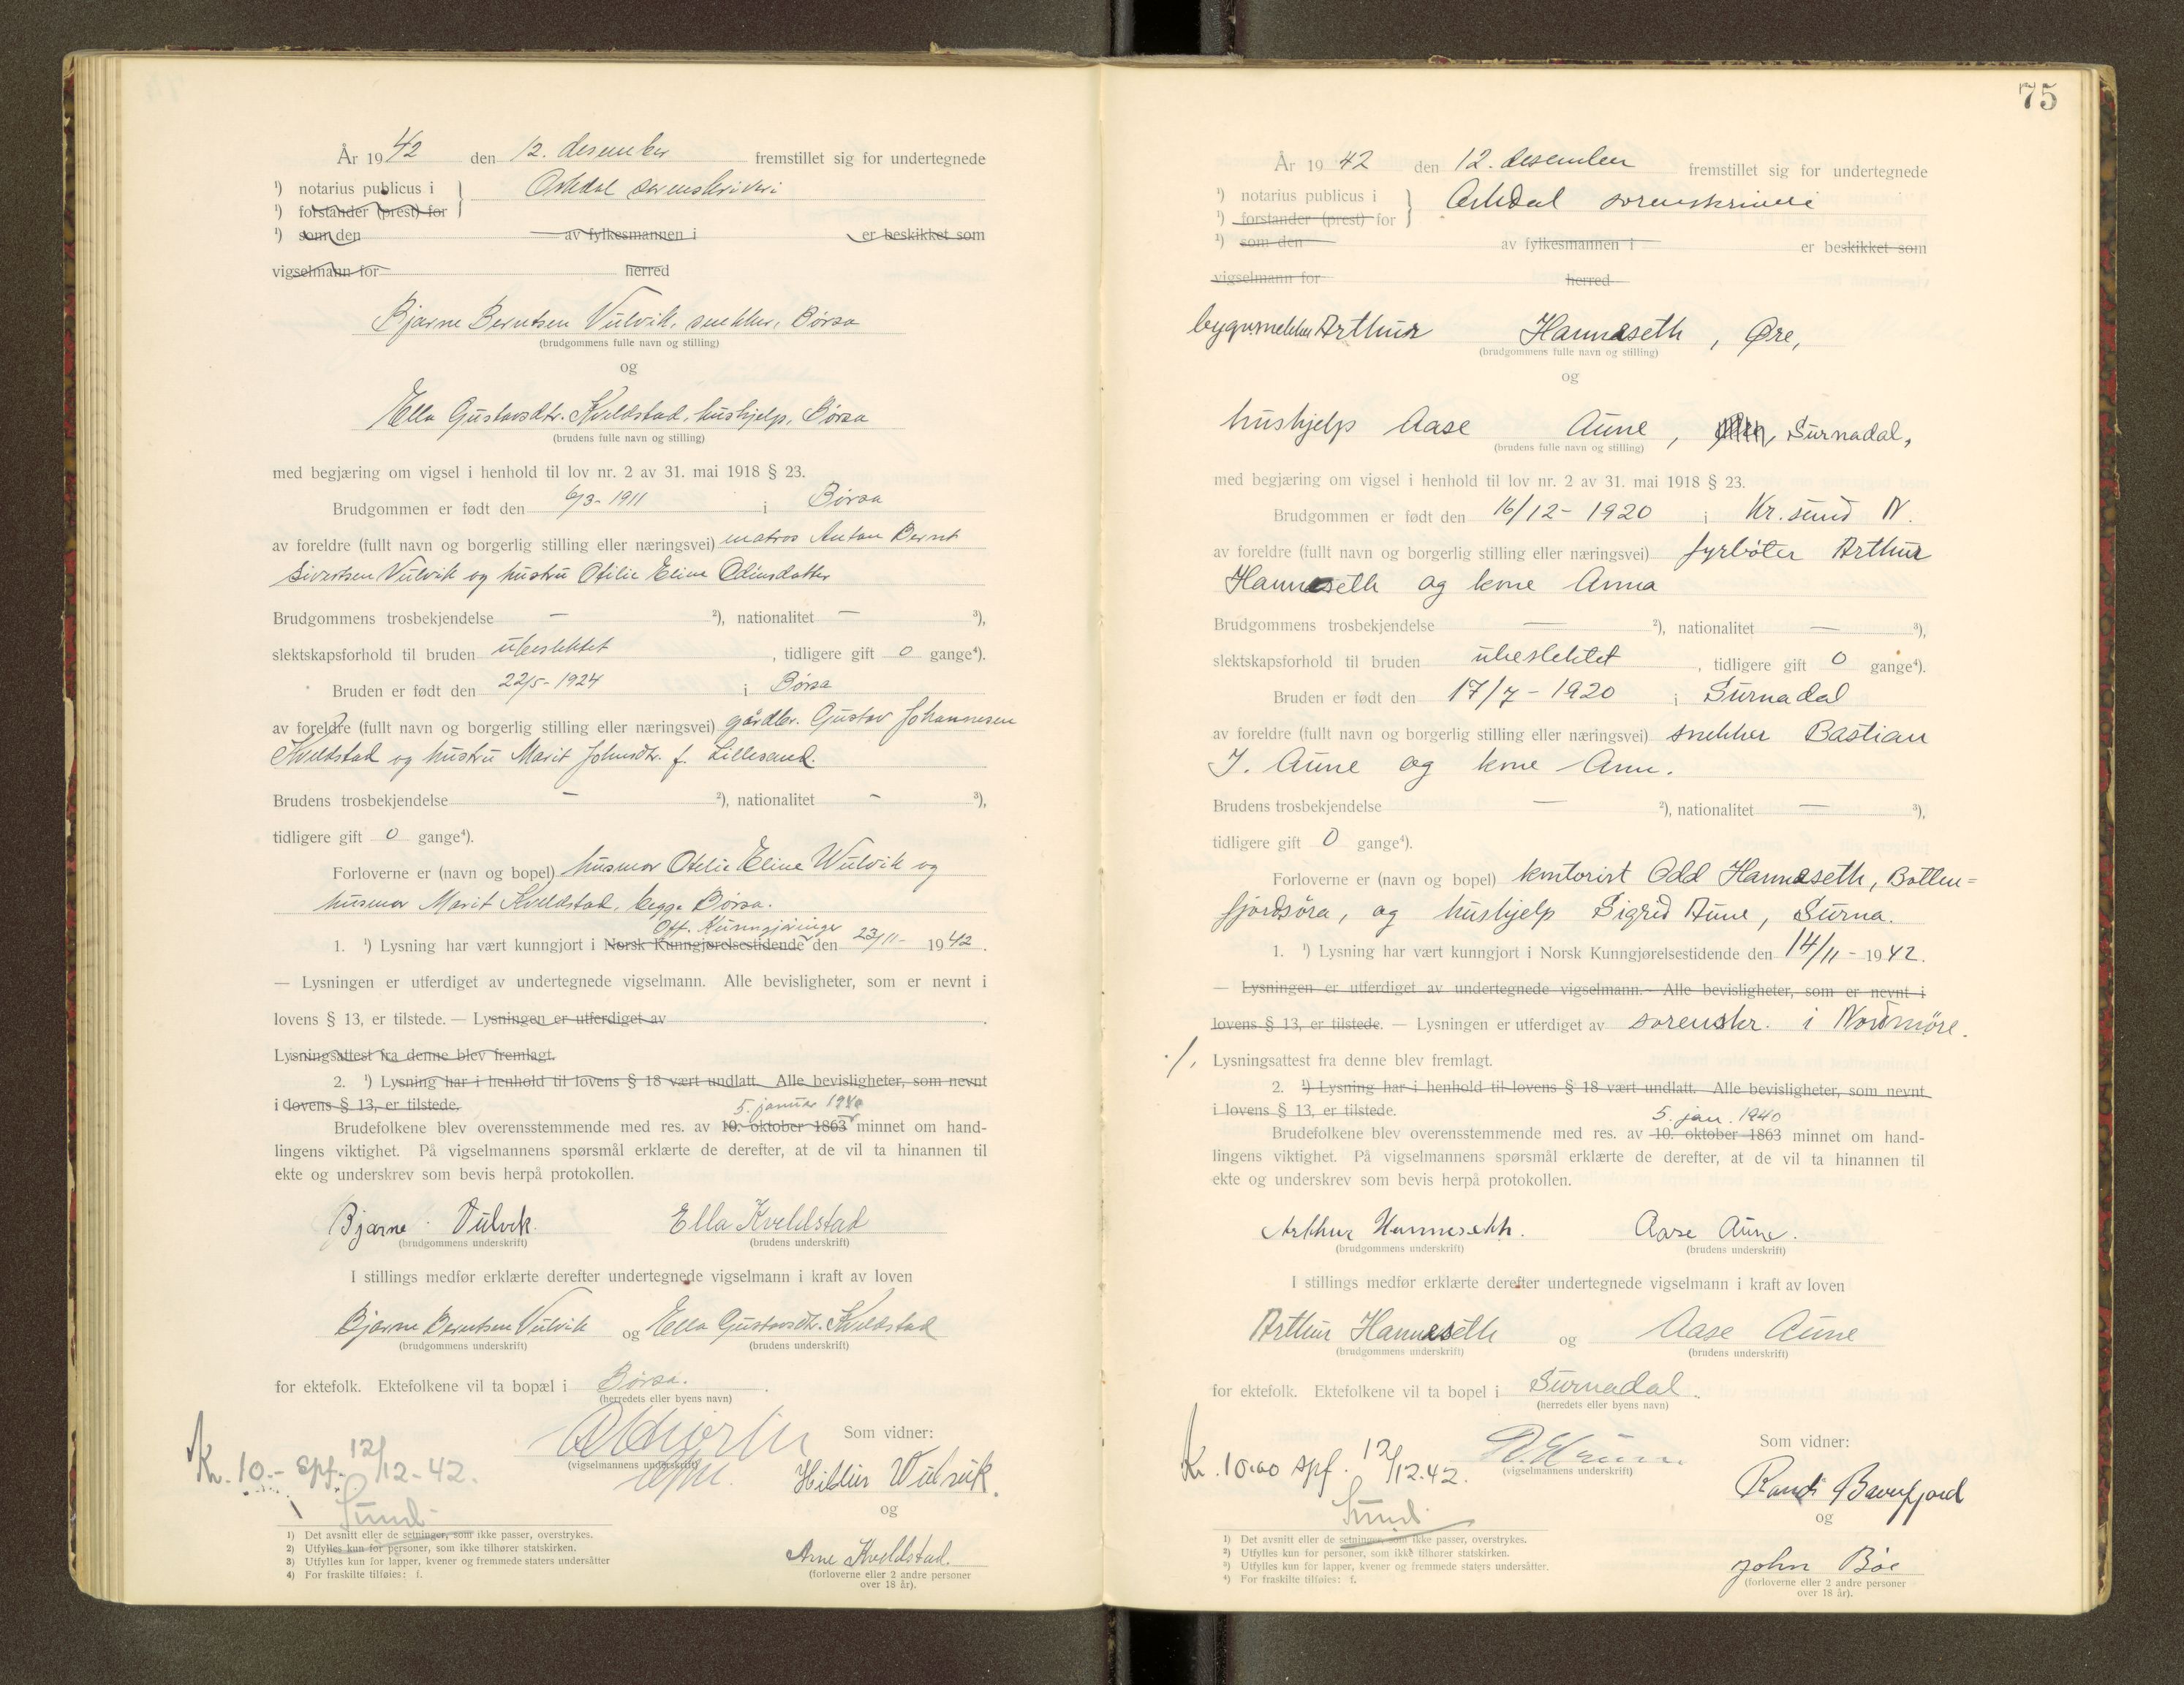 År 1942 den 12. desember fremstillet sig for undertegnede
1) notarius publicus i } Orkdal sorenskriveri
1) forstander (prest) for
1) som den av fylkesmannen i er beskikket som
vigselmann for herred
Bjarne Berntsen Vulvik, snekker, Børsa
(brudgommens fulle navn og stilling)
og
Ella Gustavsdtr. Kveldstad, hushjelp, Børsa
(brudens fulle navn og stilling)
med begjæring om vigsel i henhold til lov nr. 2 av 31. mai 1918 § 23.
Brudgommen er født den 6/3-1911 i Børsa
av foreldre (fullt navn og borgerlig stilling eller næringsvei) matros Anton Bernt
Sivertsen Vulvik og hustru Otilie Eline Odinsdatter
Brudgommens trosbekjendelse — 2), nationalitet — 3),
slektskapsforhold til bruden ubeslektet, tidligere gift 0 gange4).
Bruden er født den 22/5-1924 i Børsa
av foreldre (fullt navn og borgerlig stilling eller næringsvei) gårdbr. Gustav Johannesen
Kveldstad og hustru Marit Johnsdtr. f. Lillesand.
Brudens trosbekjendelse — 2), nationalitet - 3),
tidligere gift 0 gange4).
Forloverne er (navn og bopel) husmor Otelie Eline Wulvik og
husmor Marit Kveldstad, begge Børsa.
Off. Kunngjøringer
1. 1) Lysning har vært kunngjort i Norsk Kunngjørelsestidende den 23/11- 1942.
— Lysningen er utferdiget av undertegnede vigselmann. Alle bevisligheter, som er nevnt i
lovens § 13, er tilstede. — Lysningen er utferdiget av .
Lysningsattest fra denne blev fremlagt.
2. 1) Lysning har i henhold til lovens § 18 vært undlatt. Alle bevisligheter, som nevnt
i lovens § 13, er tilstede.
5. januar 1940
Brudefolkene blev overensstemmende med res. av 10. oktober 1863 minnet om hand-
lingens viktighet. På vigselmannens spørsmål erklærte de derefter, at de vil ta hinannen til
ekte og underskrev som bevis herpå protokollen.
Bjarne Vulvik. Ella Kveldstad
(brudgommens underskrift) (brudens underskrift)
I stillings medfør erklærte derefter undertegnede vigselmann i kraft av loven
Bjarne Berntsen Vulvik og Ella Gustavsdtr. Kveldstad
(brudgommens underskrift) (brudens underskrift)
for ektefolk. Ektefolkene vil ta bopæl i Børsa.
(herredets eller byens navn)
Som vidner:
Kr. 10.- spf. 12/12-42.
(vigselmannens underskrift)
Hildur Wulvik.
og
Sund
Arne Kveldstad.
(forloverne eller 2 andre personer
over 18 år).
1) Det avsnitt eller de setninger, som ikke passer, overstrykes.
2) Utfylles kun for personer, som ikke tilhører statskirken.
3) Utfylles kun for lapper, kvener og fremmede staters undersåtter
4) For fraskilte tilføies: f.
75
År 1942 den 12. desember fremstillet sig for undertegnede
1) notarius publicus i } Orkdal sorenskriveri
1) forstander (prest) for
1) som den av fylkesmannen i er beskikket som
vigselmann for herred
bygn.snekker Arthur Hanneseth, Øre,
(brudgommens fulle navn og stilling)
og
hushjelp Aase Aune, Surnadal,
(brudens fulle navn og stilling)
med begjæring om vigsel i henhold til lov nr. 2 av 31. mai 1918 § 23.
Brudgommen er født den 16/12-1920 i Kr.sund N.
av foreldre (fullt navn og borgerlig stilling eller næringsvei) fyrbøter Arthur
Hanneseth og kone Anna
Brudgommens trosbekjendelse — 2), nationalitet — 3),
slektskapsforhold til bruden ubeslektet, tidligere gift 0 gange4).
Bruden er født den 17/7-1920 i Surnadal
av foreldre (fullt navn og borgerlig stilling eller næringsvei) snekker Bastian
J. Aune og kone Ann.
Brudens trosbekjendelse — 2), nationalitet — 3),
tidligere gift 0 gange4).
Forloverne er (navn og bopel) kontorist Odd Hanneseth, Batten=
fjordsøra, og hushjelp Sigrid Aune, Surna.
1. 1) Lysning har vært kunngjort i Norsk Kunngjørelsestidende den 14/11-1942.
— Lysningen er utferdiget av undertegnede vigselmann. Alle bevisligheter, som er nevnt i
lovens § 13, er tilstede. — Lysningen er utferdiget av sorenskr. i Nordmøre.
./. Lysningsattest fra denne blev fremlagt.
2. 1) Lysning har i henhold til lovens § 18 vært undlatt. Alle bevisligheter, som nevnt
i lovens § 13, er tilstede.
5. jan. 1940
Brudefolkene blev overensstemmende med res. av 10. oktober 1863 minnet om hand-
lingens viktighet. På vigselmannens spørsmål erklærte de derefter, at de vil ta hinannen til
ekte og underskrev som bevis herpå protokollen.
Arthur Hanneseth. Aase Aune.
(brudgommens underskrift) (brudens underskrift)
I stillings medfør erklærte derefter undertegnede vigselmann i kraft av loven
Arthur Hanneseth og Aase Aune
(brudgommens underskrift) (brudens underskrift)
for ektefolk. Ektefolkene vil ta bopel i Surnadal.
(herredets eller byens navn)
Som vidner:
Kr. 10.00 spf. 12/12.42.
(vigselmannens underskrift)
Randi Bæverfjord
og
Sund
John Bøe
(forloverne eller 2 andre personer
over 18 år).
1) Det avsnitt eller de setninger, som ikke passer, overstrykes.
2) Utfylles kun for personer, som ikke tilhører statskirken.
3) Utfylles kun for lapper, kvener og fremmede staters undersåtter.
4) For fraskilte tilføies: f.